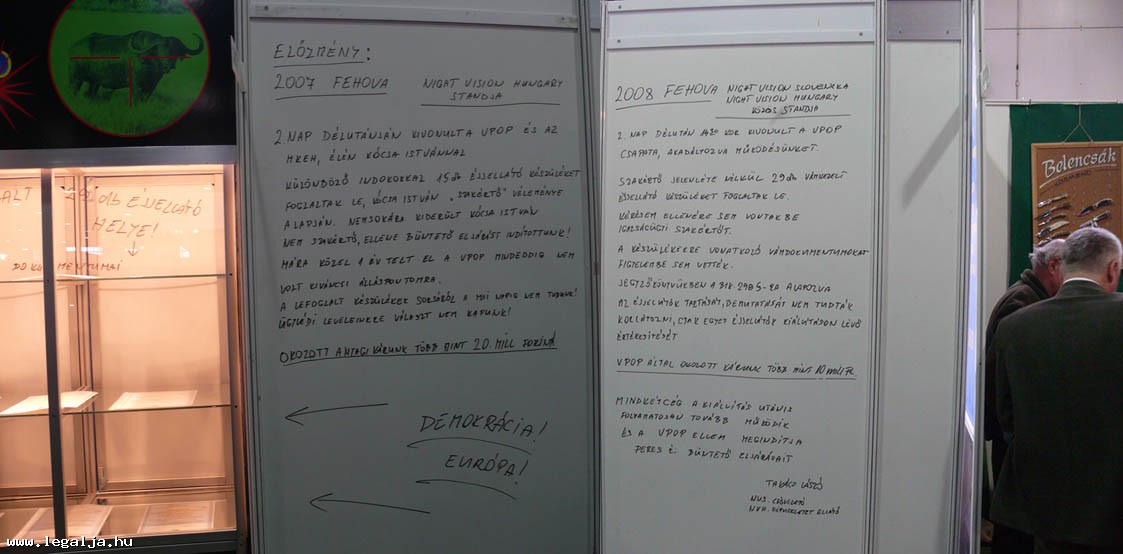 ELŐZMÉNY:
2007 FEHOVA NIGHT VISION HUNGARY
STANDJA
2. NAP DÉLUTÁNJÁN KIVONULT A VPOP ÉS AZ
MKEH, ÉLÉN KÓCSA ISTVÁNNAL
KÜLÖNBÖZŐ INDOKOKKAL 15 db ÉJJELLÁTÓ KÉSZÜLÉKET
FOGLALTAK LE, KÓCSA ISTVÁN „SZAKÉRTŐ" VÉLEMÉNYE
ALAPJÁN. NEMSOKÁRA KIDERÜLT KÓCSA ISTVÁN
NEM SZAKÉRTŐ, ELLENE BÜNTETŐ ELJÁRÁST INDÍTOTTUNK!
MÁRA KÖZEL 1 ÉV TELT EL A VPOP MINDEDDIG NEM
VOLT KIVÁNCSI ÁLLÁSPONTOMRA.
A LEFOGLALT KÉSZÜLÉKEK SORSÁRÓL A MAI NAPIG NEM TUDUNK!
ÜGYVÉDI LEVELEINKRE VÁLASZT NEM KAPUNK!
OKOZOTT ANYAGI KÁRUNK TÖBB MINT 20. MILL FORINT
DEMOKRÁCIA!
EURÓPA!
2008 FEHOVA NIGHT VISION SLOVENSKA
NIGHT VISION HUNGARY
KÖZÖS STANDJA
2. NAP DÉLUTÁN KOR KIVONULT A VPOP
CSAPATA, AKADÁLYOZVA MŰKÖDÉSÜNKET.
SZAKÉRTŐ JELENLÉTE NÉLKÜL 29 db VÁMKEZELT
ÉJSELLÁTÓ KÉSZÜLÉKET FOGLALTAK LE.
KÉRÉSEM ELLENÉRE SEM VONTAK BE
IGAZSÁGÜGYI SZAKÉRTŐT.
A KÉSZÜLÉKEKRE VONATKOZÓ VÁMDOKUMENTUMOKAT
FIGYELEMBE SEM VETTÉK.
JEGYZŐKÖNYVÜKBEN A BTK. 298 §-RA ALAPOZVA
AZ ÉJSELLÁTÓK TARTÁSÁT, BEMUTATÁSÁT NEM TUDTÁK
KORLÁTOZNI, CSAK EGYES ÉJSELLÁTÓK KIÁLLITÁSON LÉVŐ
ÉRTÉKESITÉSÉT
VPOP ÁLTAL OKOZOTT KÁRUNK TÖBB MINT 10 mill Ft.
MINDKÉT CÉG A KIÁLLÍTÁS UTÁN IS
FOLYAMATOSAN TOVÁBB MŰKÖDIK
ÉS A VPOP ELLEN MEGINDÍTJA
PERES ÉS BÜNTETŐ ELJÁRÁSAIT
TAKÁCS LÁSZLÓ
NVS.
NVH. KÉPVISELETET ELLÁTÓ
db ÉJSELLÁTÓ
HELYE!
DOKUMENTUMAI
Belencsák
www.legalja.hu